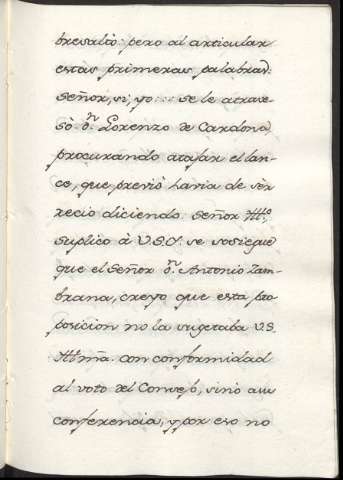 bresaltò: pero al articular
estas primeras palabras:
señor, si, yo... se le atrave-
sò d.ⁿ Lorenzo de Cardona
procurando atajar el lan-
ce, que previò havia de sèr
recio diciendo: señor Ill.º
suplico à V.S.Y. se sosiegue
que el señor d.ⁿ Antonio Zam-
brana, creyo que esta pro
posicion no la sugetaba V.S.
Ill.mã. con conformidad
al voto del Consejo, sino a su
conferencia, y por eso no